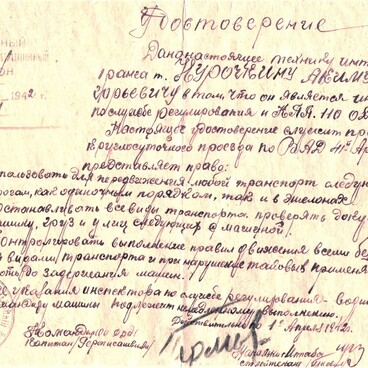 Удостоверение
Дано настоящее технику инт
транса т. КУРОЧКИНУ АКИМУ
Юрьевичу в том, что он является ин
по службе регулирования и К.А.А. 110 О
Настоящее удостоверение служит
круглосуточного проезда по
представляет право:
пользовать для передвижения любой транспорт следую
рогам, как одиночным порядком, так и в эшелонах
останавливать все виды транспорта, проверять доку
шину, груз и улиц следующих с машиной.
контролировать выполнение правил движения всеми бе
видами транспорта и при нарушении таковых применя
до задержания машин.
указания инспектора по службе регулирования води
командир машины подлежит немедленному выполнению.
Действительно по 1 Апреля 1942 г.
Командир
Капитан
1942 г.